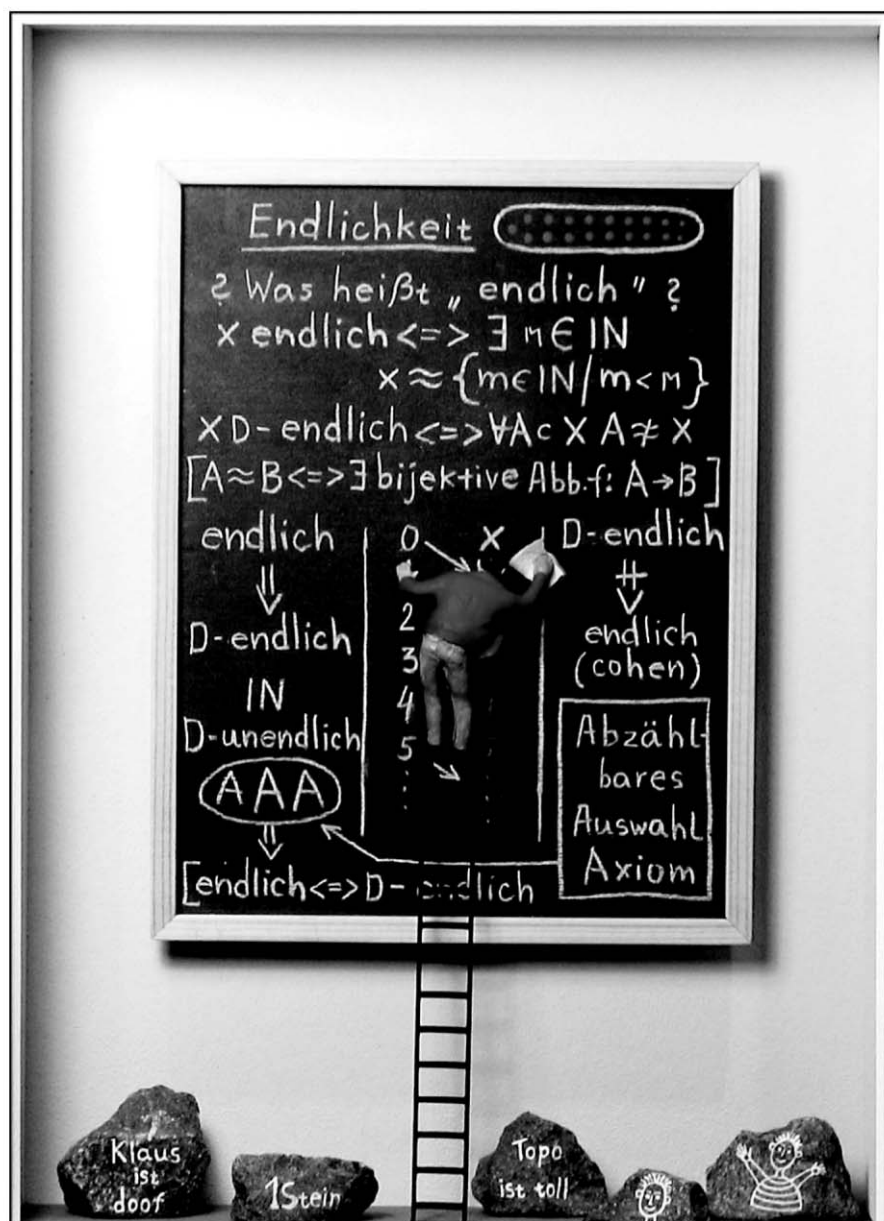 Endlichkeit
? Was heißt „ endlich " ?
x endlich <=> ∃ n ∈ IN
x ≈ {m ∈ IN / m < n}
X D-endlich <=> ∀A ⊂ X A ≉ X
[A ≈ B <=> ∃ bijektive Abb. f: A → B]
endlich
⇓
D-endlich
IN
D-unendlich
AAA
⇓
[endlich <=> D-endlich
0 x
2
3
4
5
D-endlich
endlich
(cohen)
Abzähl-
bares
Auswahl
Axiom
Klaus
ist
doof
1Stein
Topo
ist toll